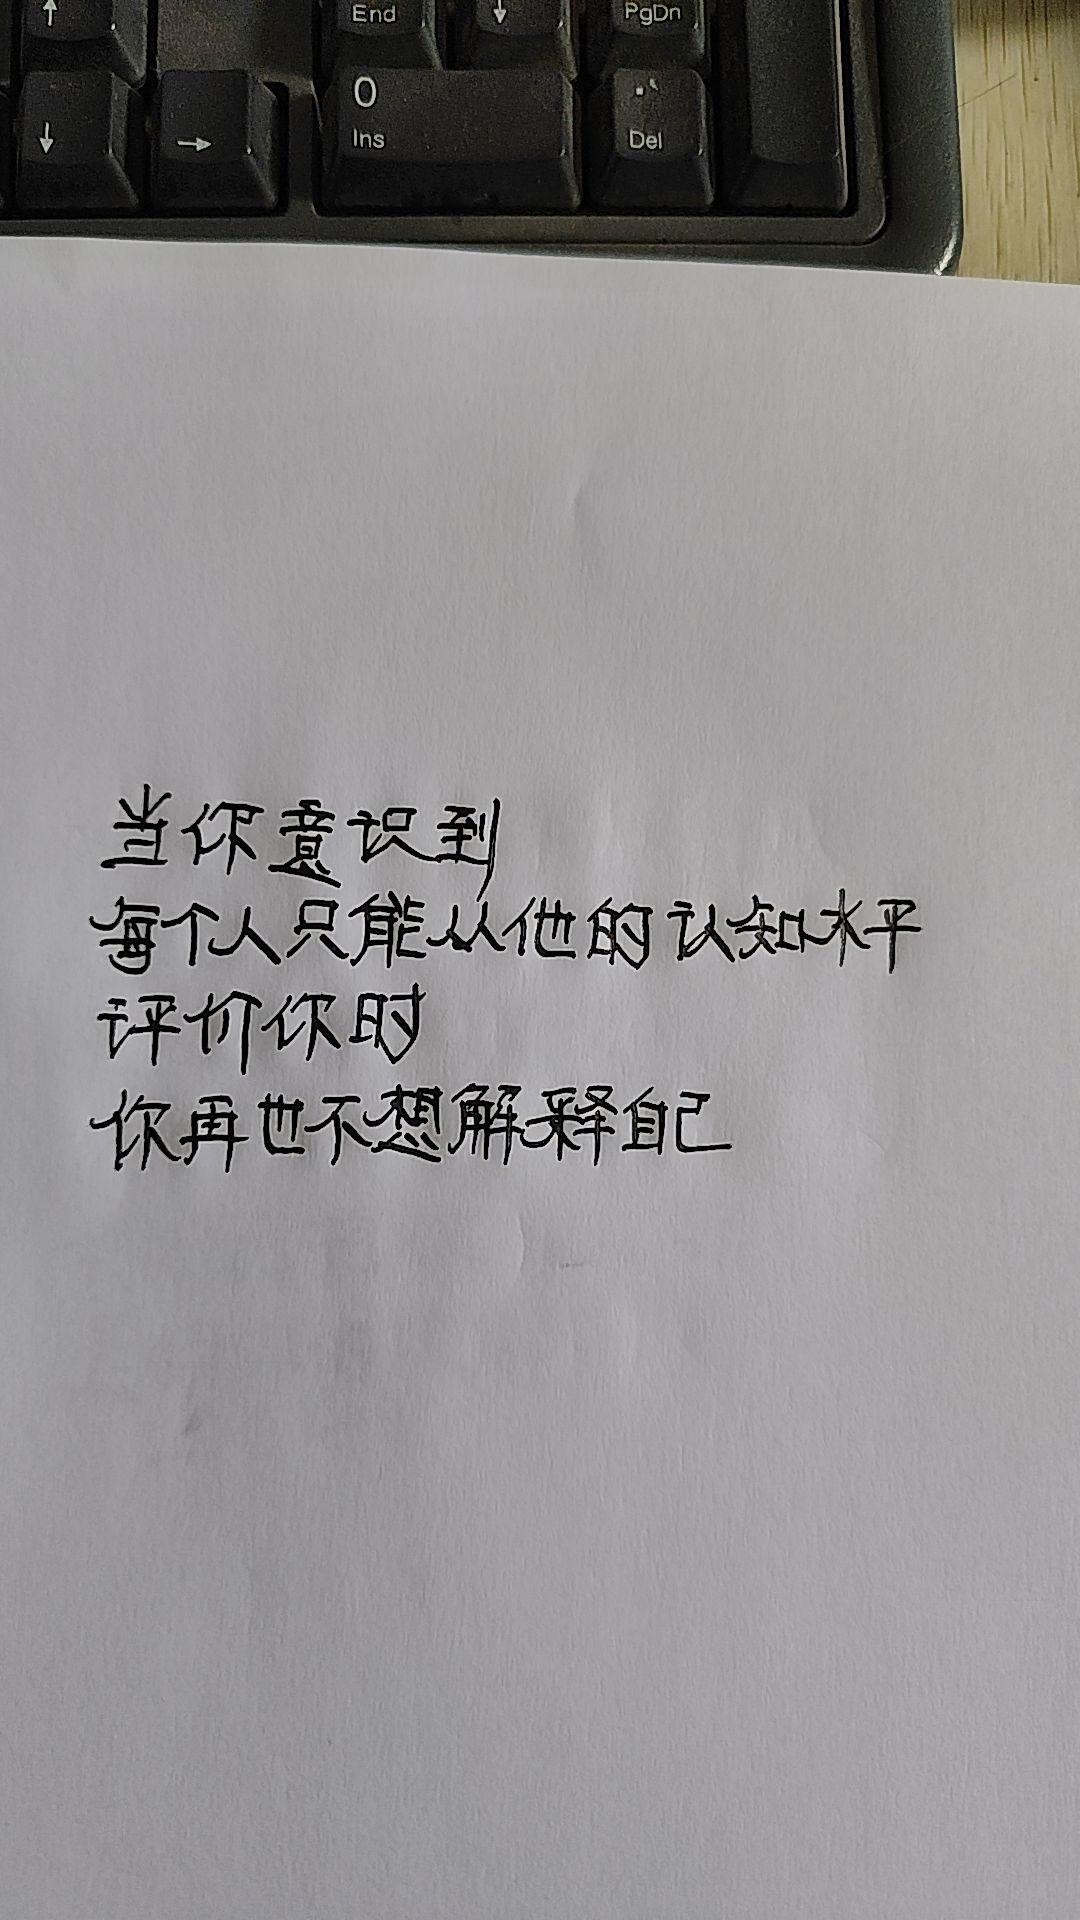 ↑ End ↓ PgDn
0 .
↓ → Ins Del
当你意识到
每个人只能从他的认知水平
评价你时
你再也不想解释自己